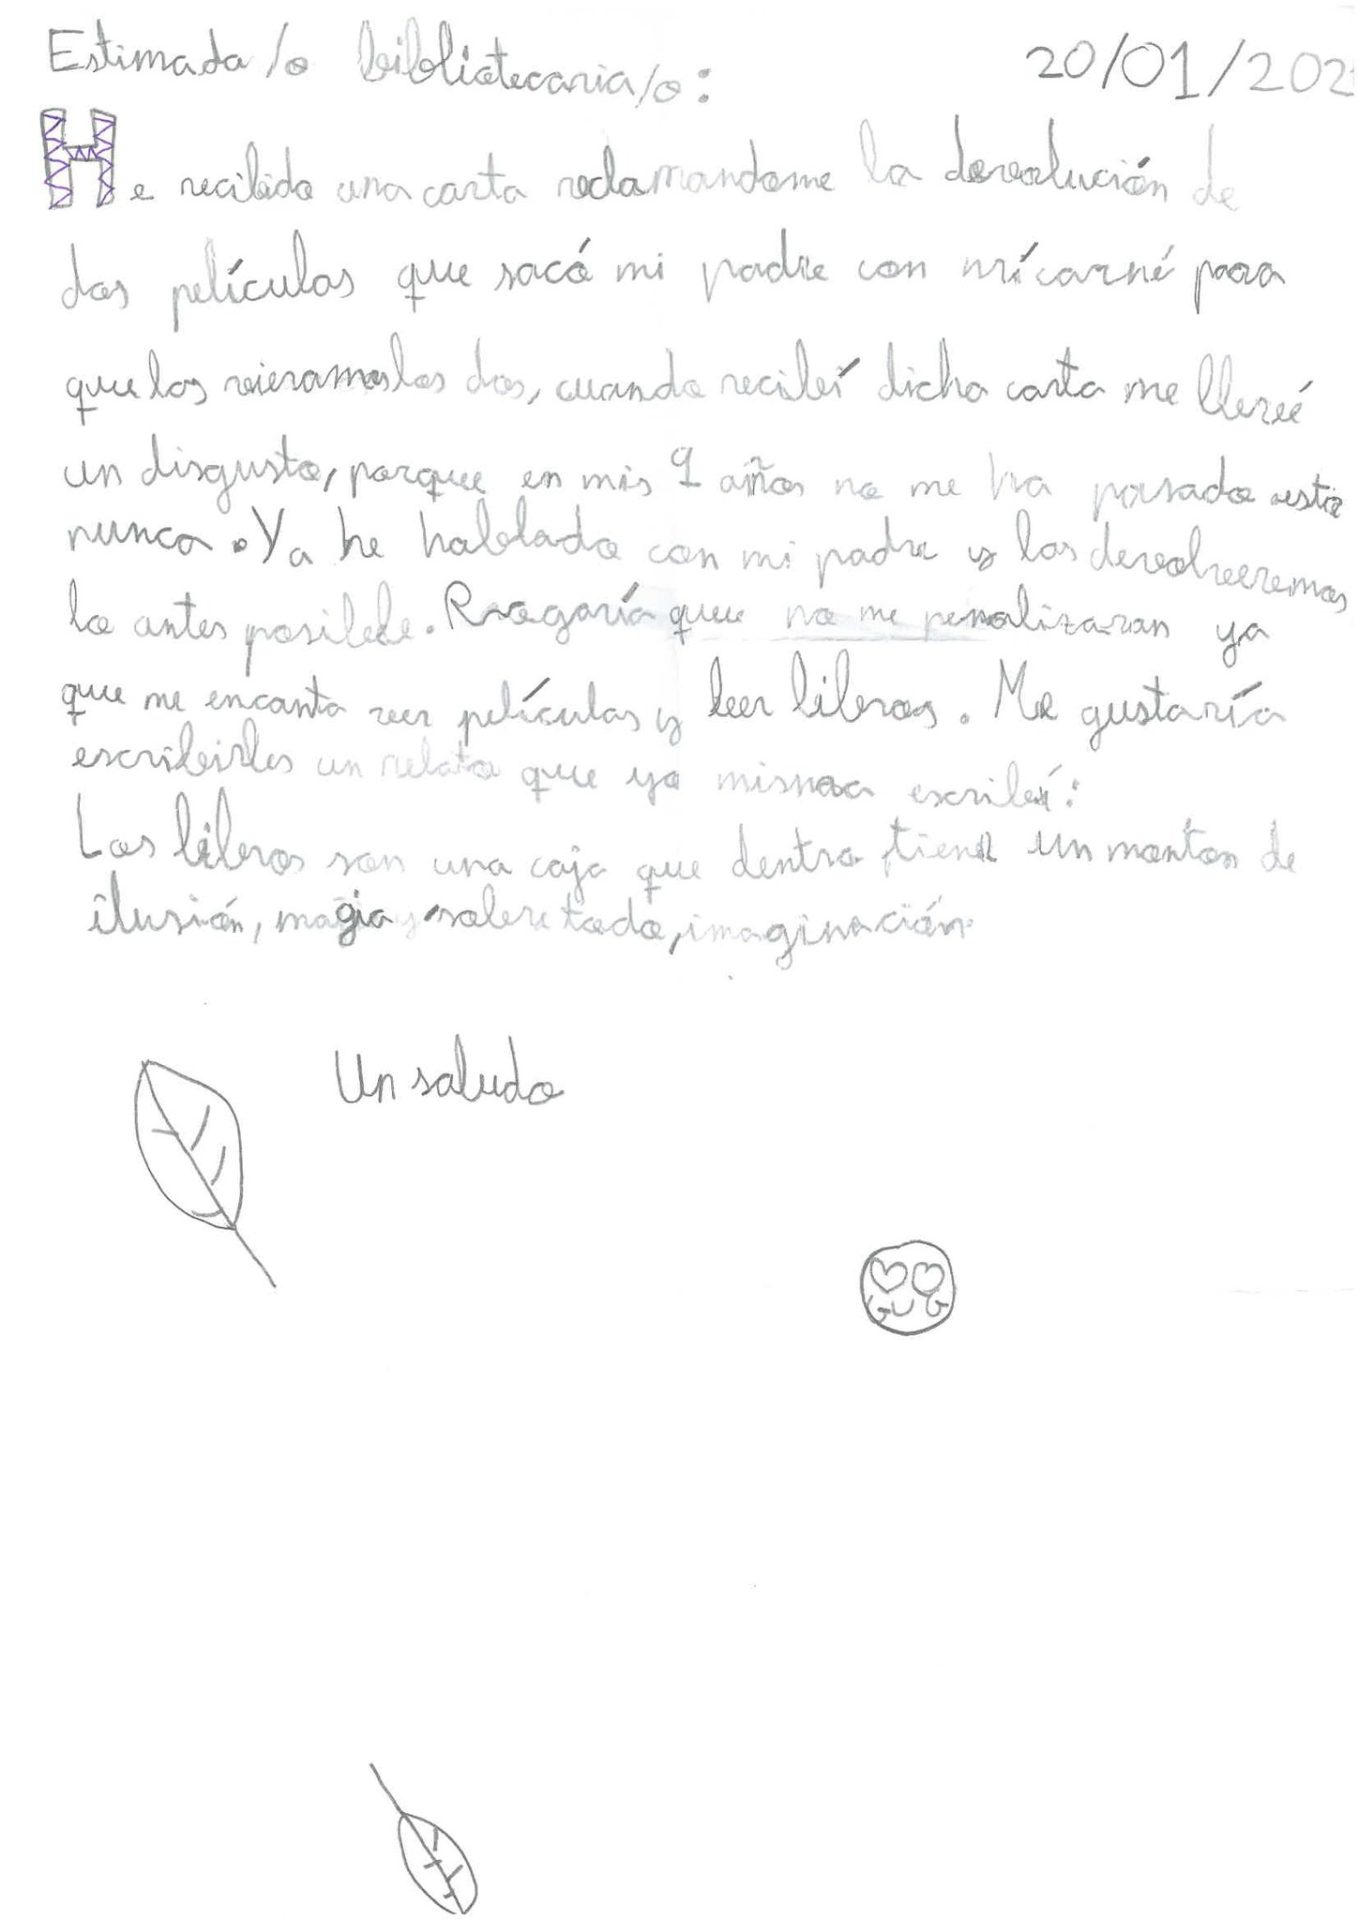 Estimada/o bibliotecaria/o: 20/01/202
He recibido una carta reclamandome la devolución de
dos películas que sacó mi padre con mí carné para
que las vieramos los dos, cuando recibí dicha carta me llevé
un disgusto, porque en mis 9 años no me ha pasado esto
nunca. Ya he hablado con mi padre y las devolveremos
lo antes posible. Rogaría que no me penalizaran ya
que me encanta ver películas y leer libros. Me gustaría
escribirles un relato que yo misma escribí:
Los libros son una caja que dentro tiene un monton de
ilusión, magia y sobre todo, imaginación.
Un saludo